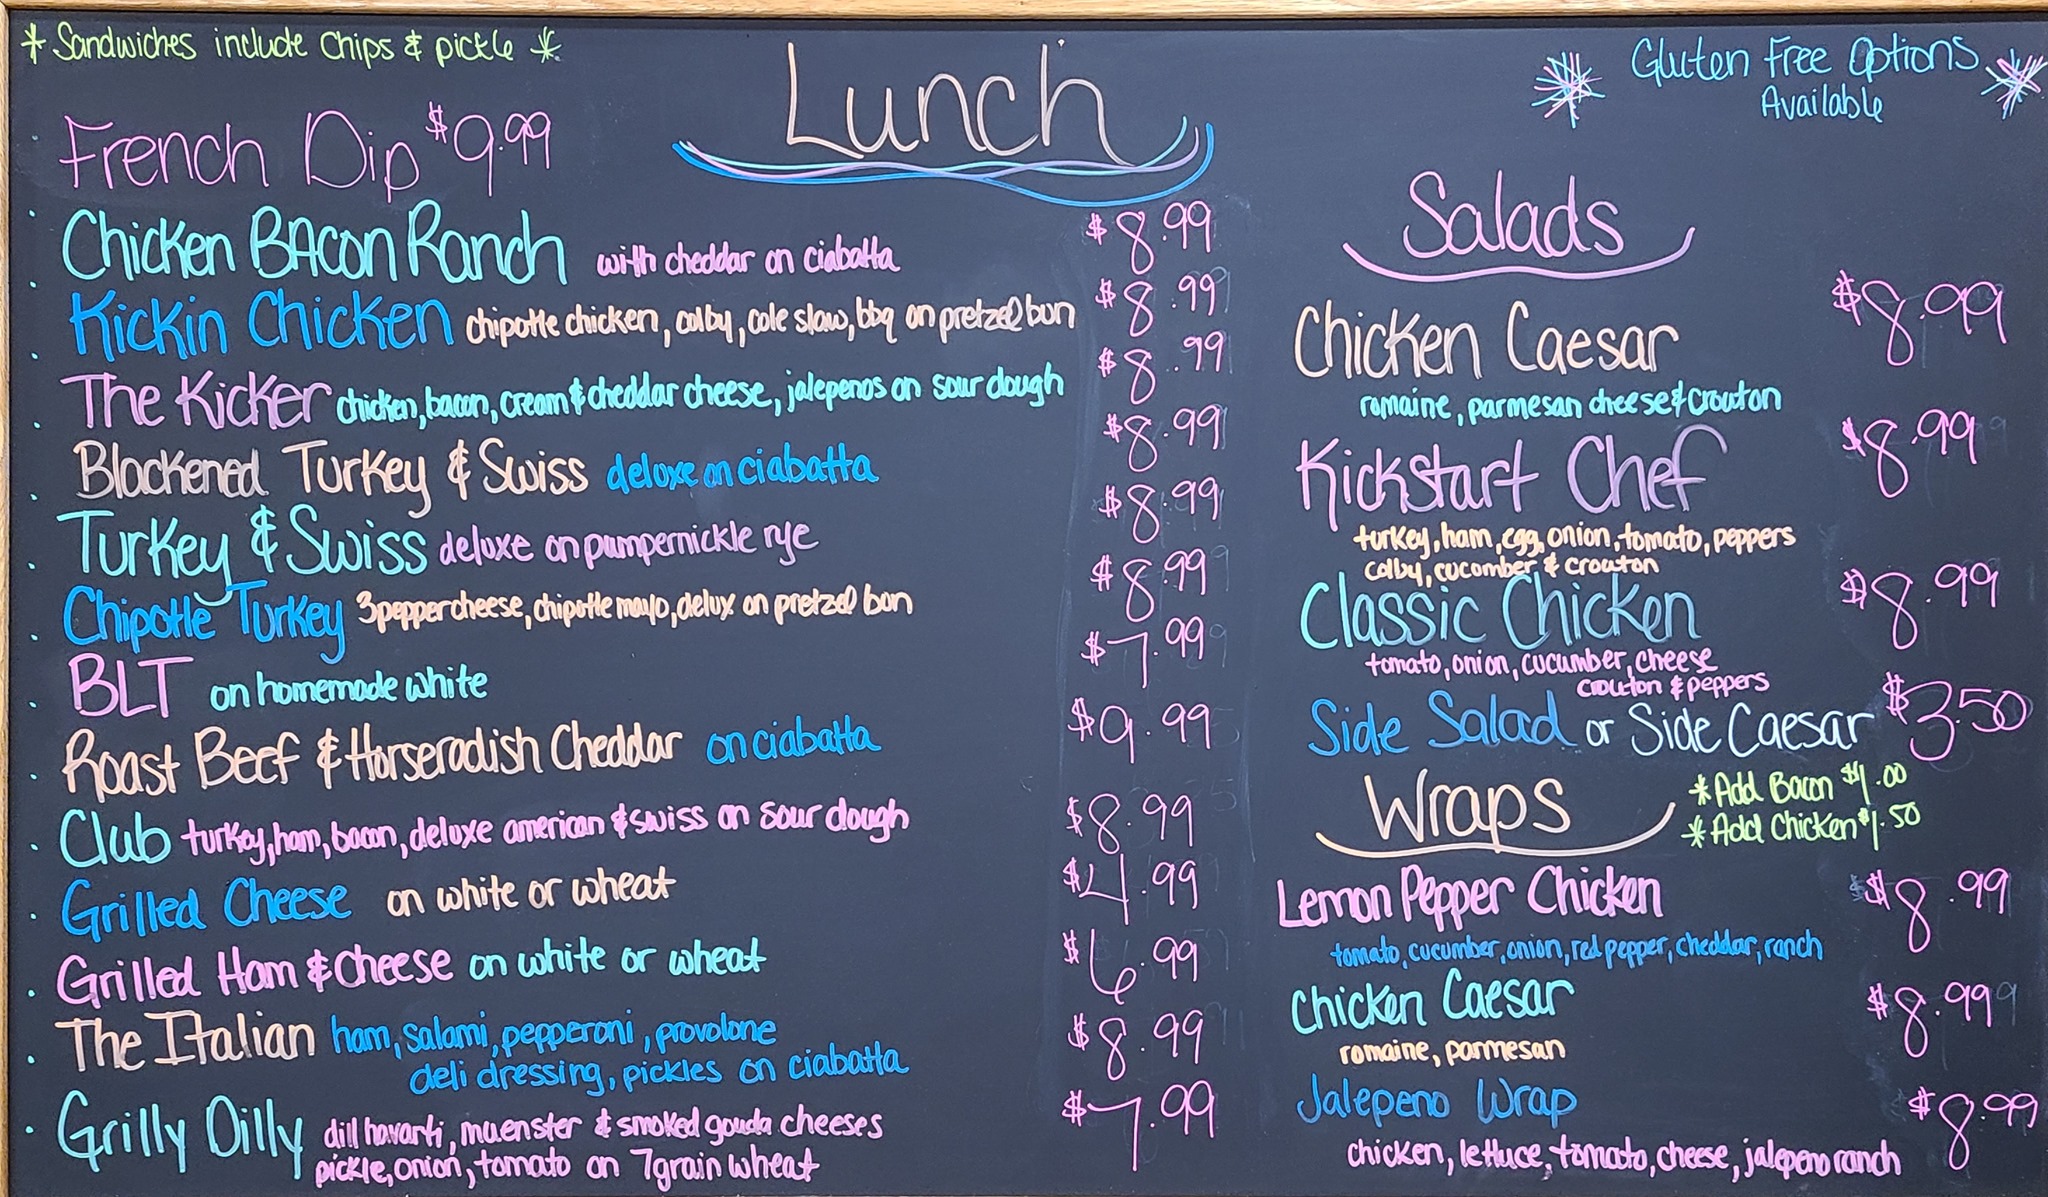 * Sandwiches include chips & pickle *
Lunch
Gluten Free Options
Available
French Dip $9.99
Chicken BAcon Ranch with cheddar on ciabatta $8.99
Kickin Chicken chipotle chicken, colby, cole slaw, bbq on pretzel bun $8.99
The Kicker chicken, bacon, cream & cheddar cheese, jalepenos on sour dough $8.99
Blackened Turkey & Swiss deluxe on ciabatta $8.99
Turkey & Swiss deluxe on pumpernickle rye $8.99
Chipotle Turkey 3 pepper cheese, chipotle mayo, delux on pretzel bun $8.99
BLT on homemade white $7.99
Roast Beef & Horseradish Cheddar on ciabatta $9.99
Club turkey, ham, bacon, deluxe american & swiss on sour dough $8.99
Grilled Cheese on white or wheat $4.99
Grilled Ham & Cheese on white or wheat $6.99
The Italian ham, salami, pepperoni, provolone $8.99
deli dressing, pickles on ciabatta
Grilly Dilly dill havarti, muenster & smoked gouda cheeses $7.99
pickle, onion, tomato on 7 grain wheat
Salads
Chicken Caesar $8.99
romaine, parmesan cheese & crouton
Kickstart Chef $8.99
turkey, ham, egg, onion, tomato, peppers
colby, cucumber & crouton
Classic Chicken $8.99
tomato, onion, cucumber, cheese
crouton & peppers
Side Salad or Side Caesar $3.50
Wraps
* Add Bacon $1.00
* Add Chicken $1.50
Lemon Pepper Chicken $8.99
tomato, cucumber, onion, red pepper, cheddar, ranch
Chicken Caesar $8.99
romaine, parmesan
Jalepeno Wrap $8.99
chicken, lettuce, tomato, cheese, jalepeno ranch